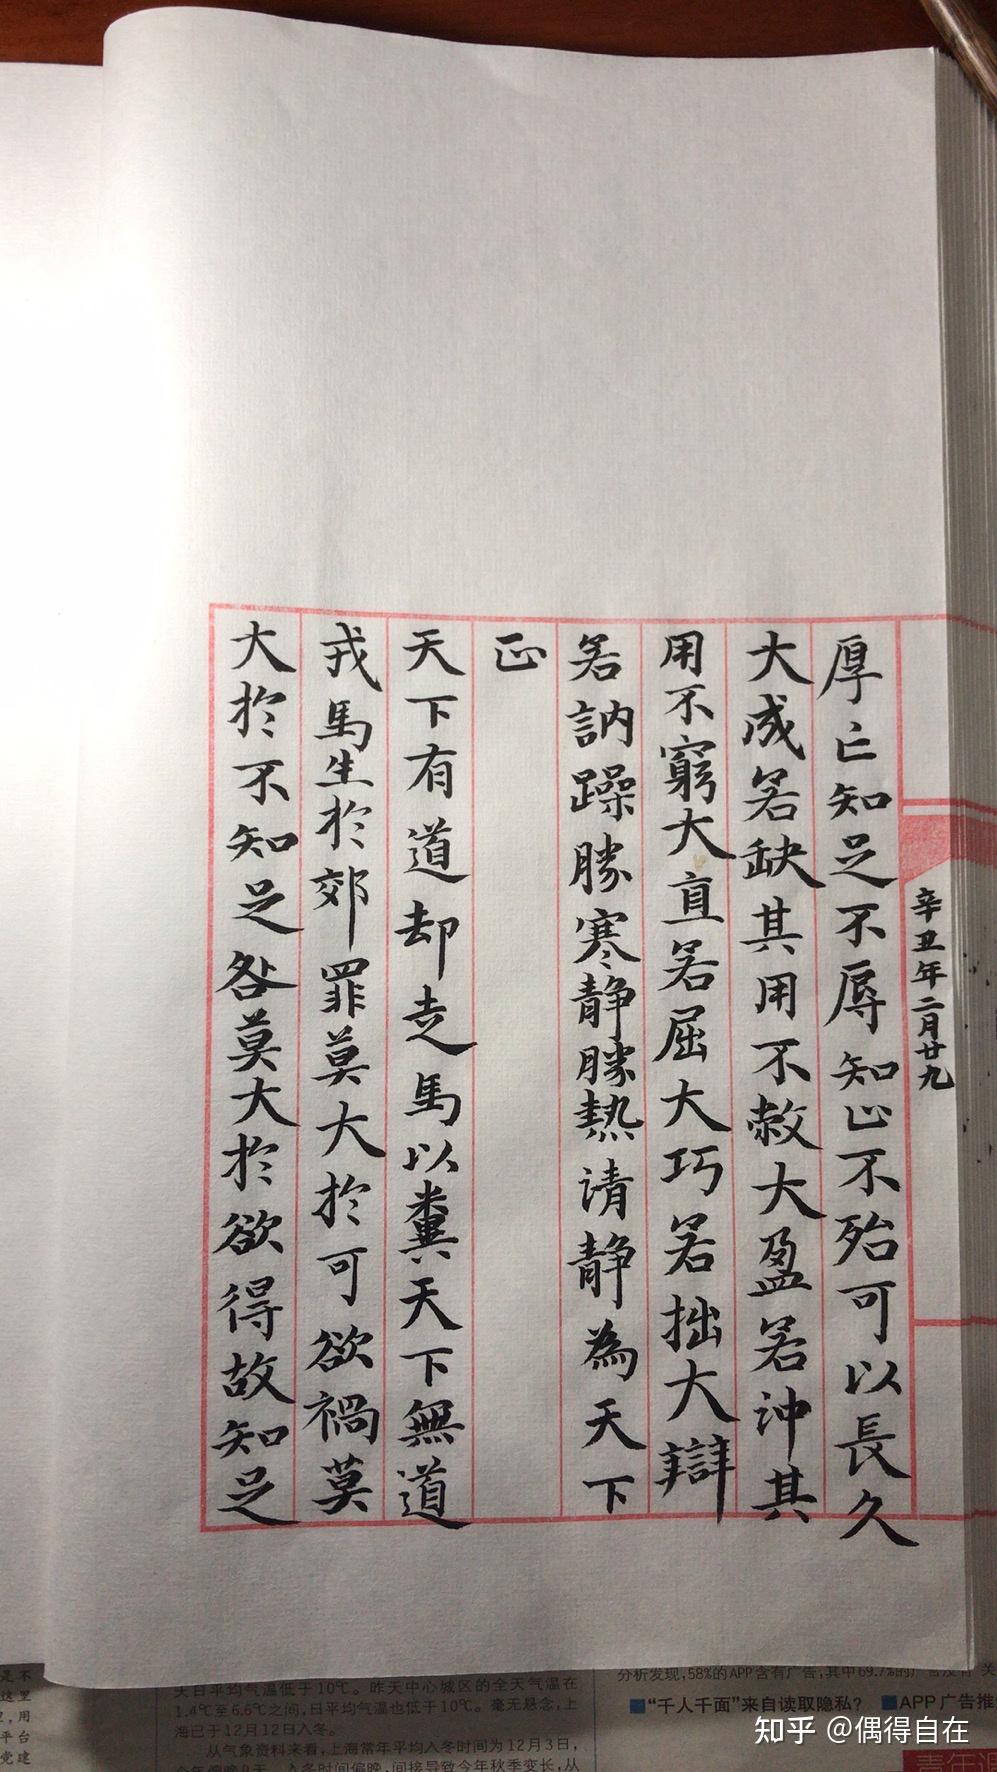 辛丑年二月廿九
厚亡知足不辱知止不殆可以長久
大成若缺其用不敝大盈若沖其
用不窮大直若屈大巧若拙大辯
若訥躁勝寒靜勝熱请靜為天下
正
天下有道却走馬以糞天下無道
戎馬生於郊罪莫大於可欲禍莫
大於不知足咎莫大於欲得故知足
大日平均气温低于10℃。昨天中心城区的全天气温在
1.4℃至6.6℃之间,日平均气温也低于10℃。毫无悬念,上
海已于12月12日入冬。
从气象资料来看,上海常年平均入冬时间为12月3日,
分析发现,58%的APP含有广告,其中69.7%的广告没有
“千人千面”来自读取隐私?
APP广告推
是不
这里
,用
平台
党建
知乎 @偶得自在